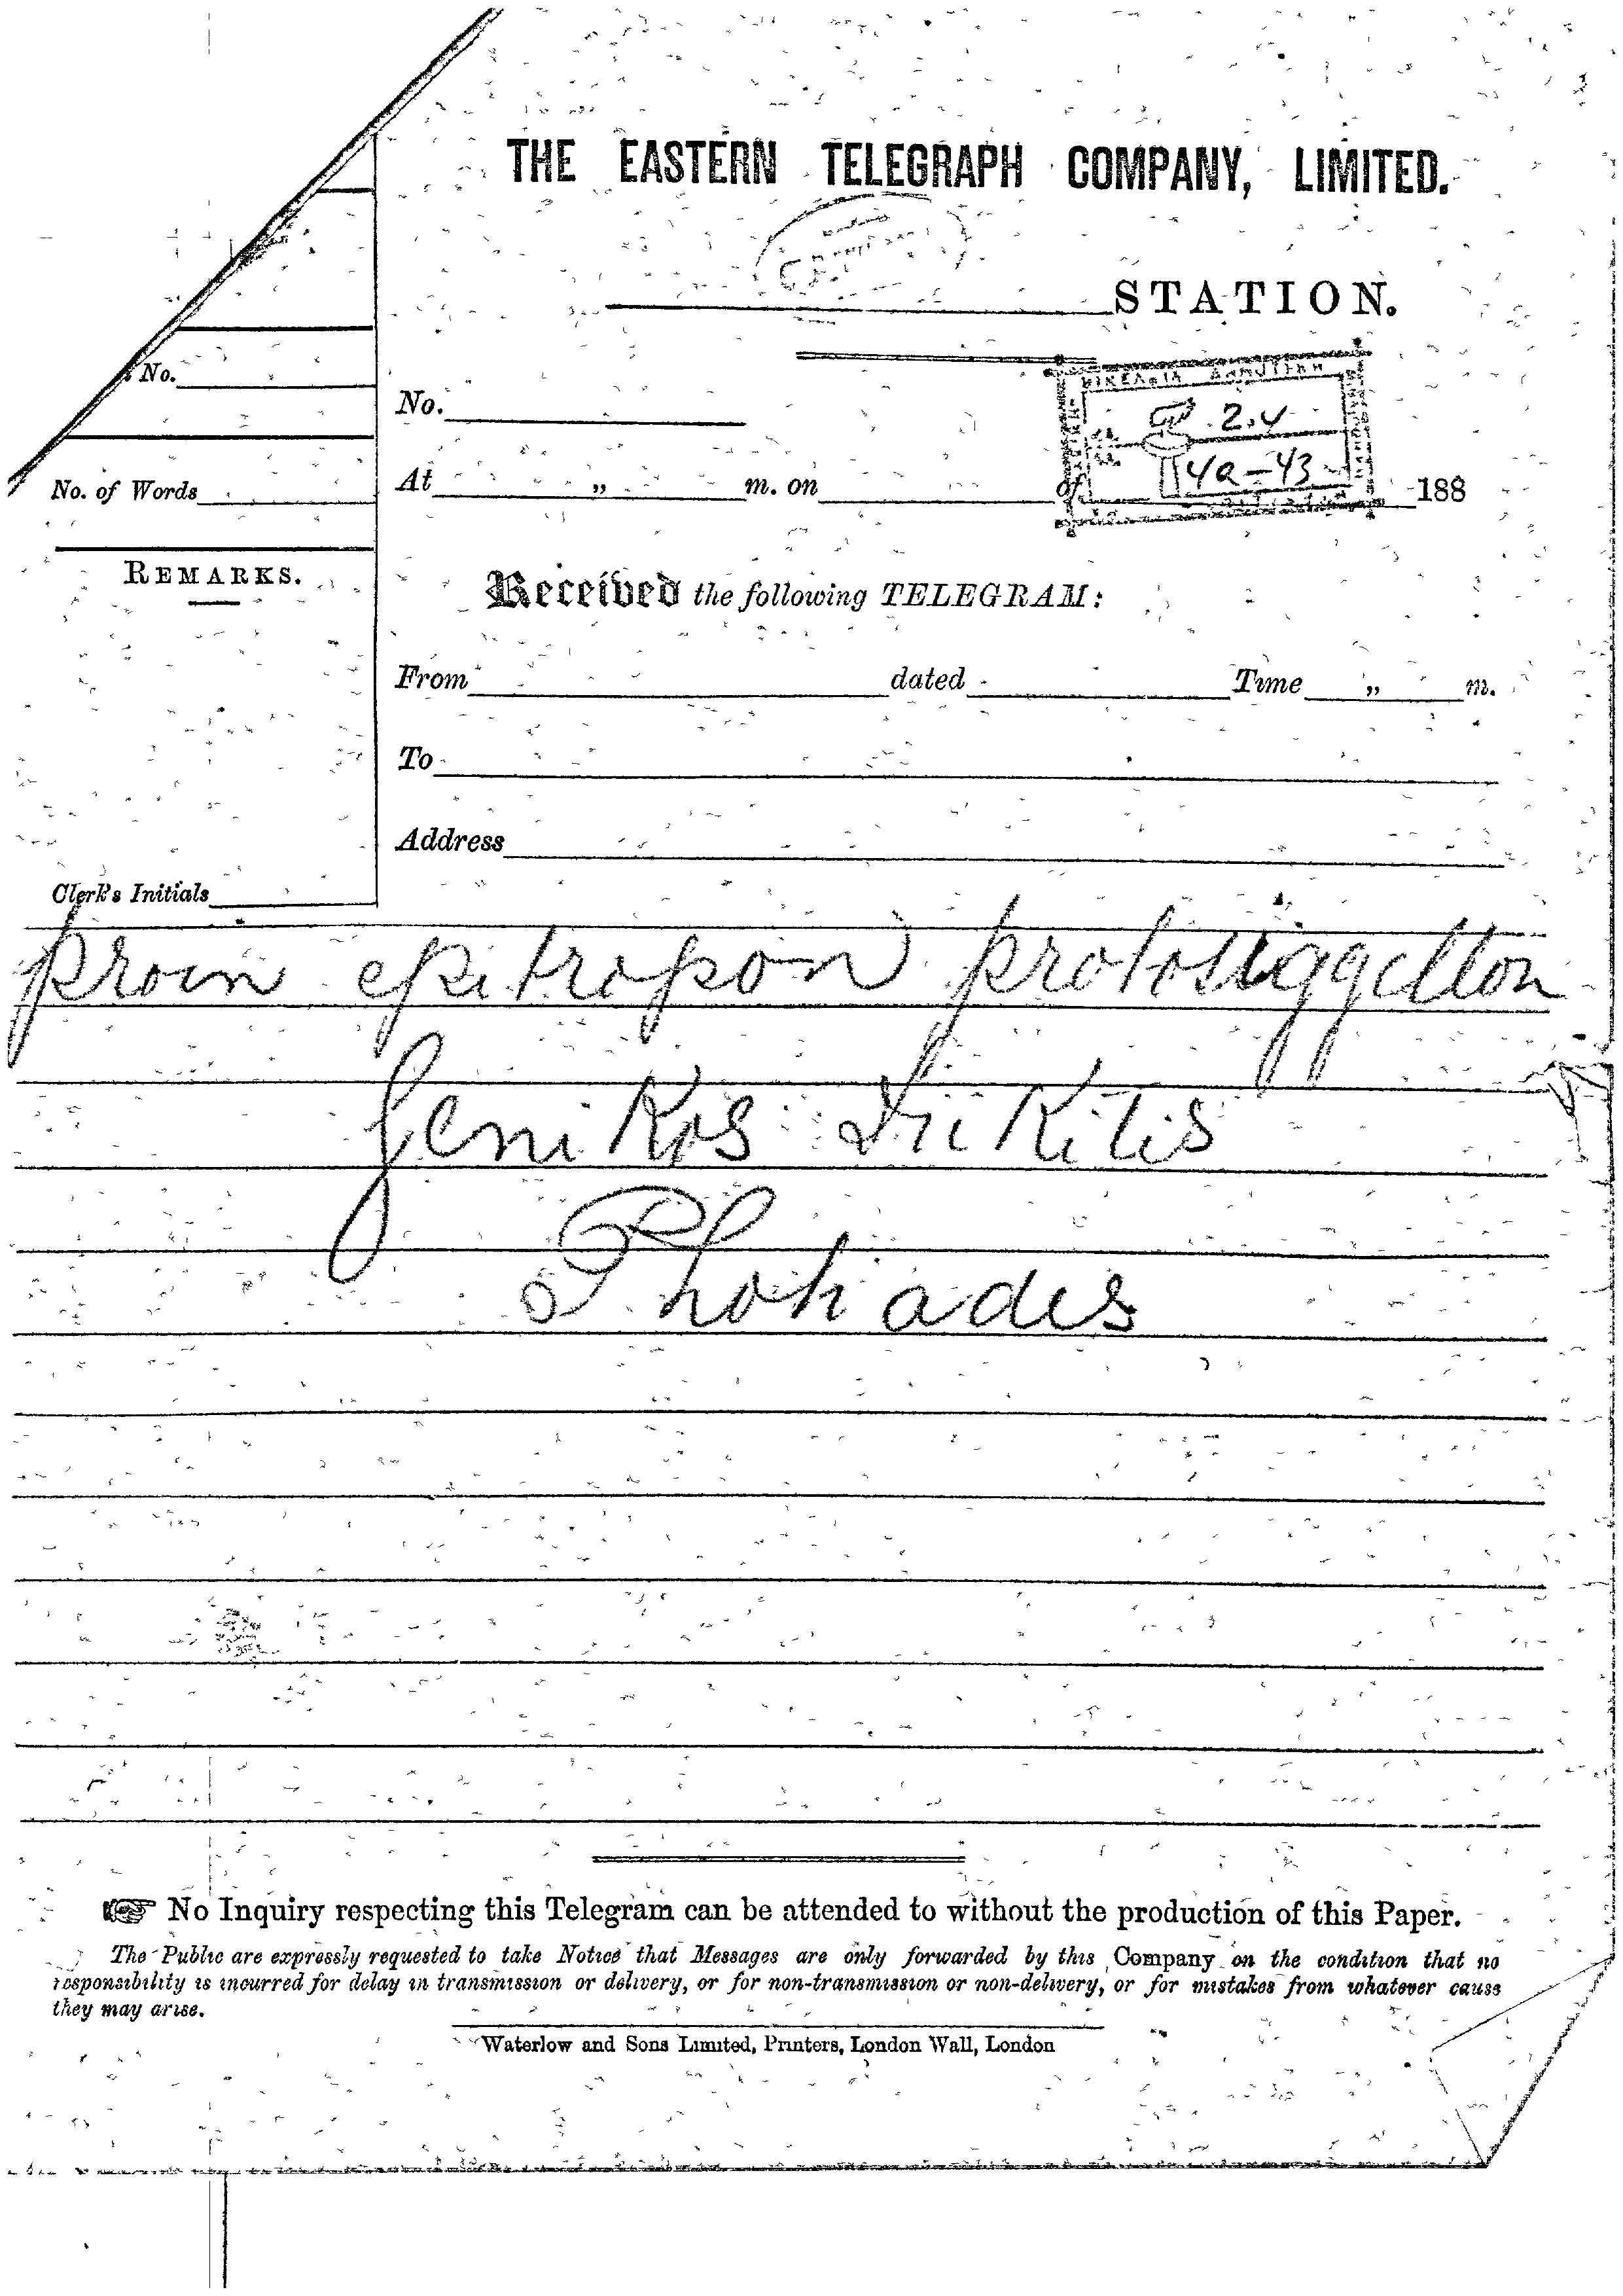 THE EASTERN TELEGRAPH COMPANY, LIMITED.
STATION.
No.
No.
2.4
4a-43
No. of Words
At „ m. on of 188
REMARKS.
Received the following TELEGRAM:
From dated Time „ m.
To
Address
Clerk's Initials
proin epitropon
Genikos
No Inquiry respecting this Telegram can be attended to without the production of this Paper.
The Public are expressly requested to take Notice that Messages are only forwarded by this Company on the condition that no
responsibility is incurred for delay in transmission or delivery, or for non-transmission or non-delivery, or for mistakes from whatever cause
they may arise.
Waterlow and Sons Limited, Printers, London Wall, London